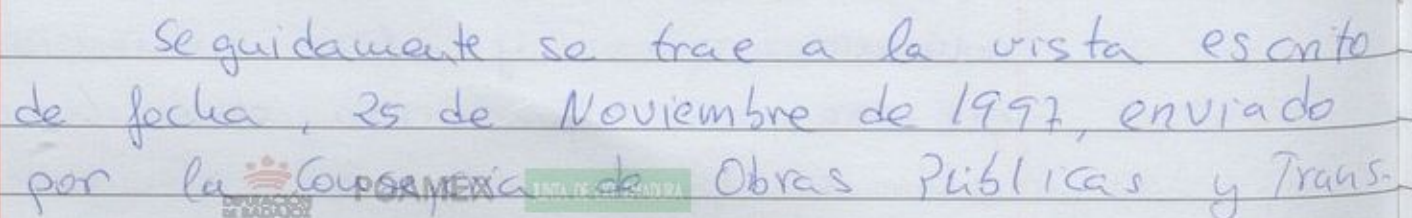 Seguidamente se trae a la vista escrito
de fecha, 25 de Noviembre de 1997, enviado
por la Consejería de Obras Públicas y Trans-